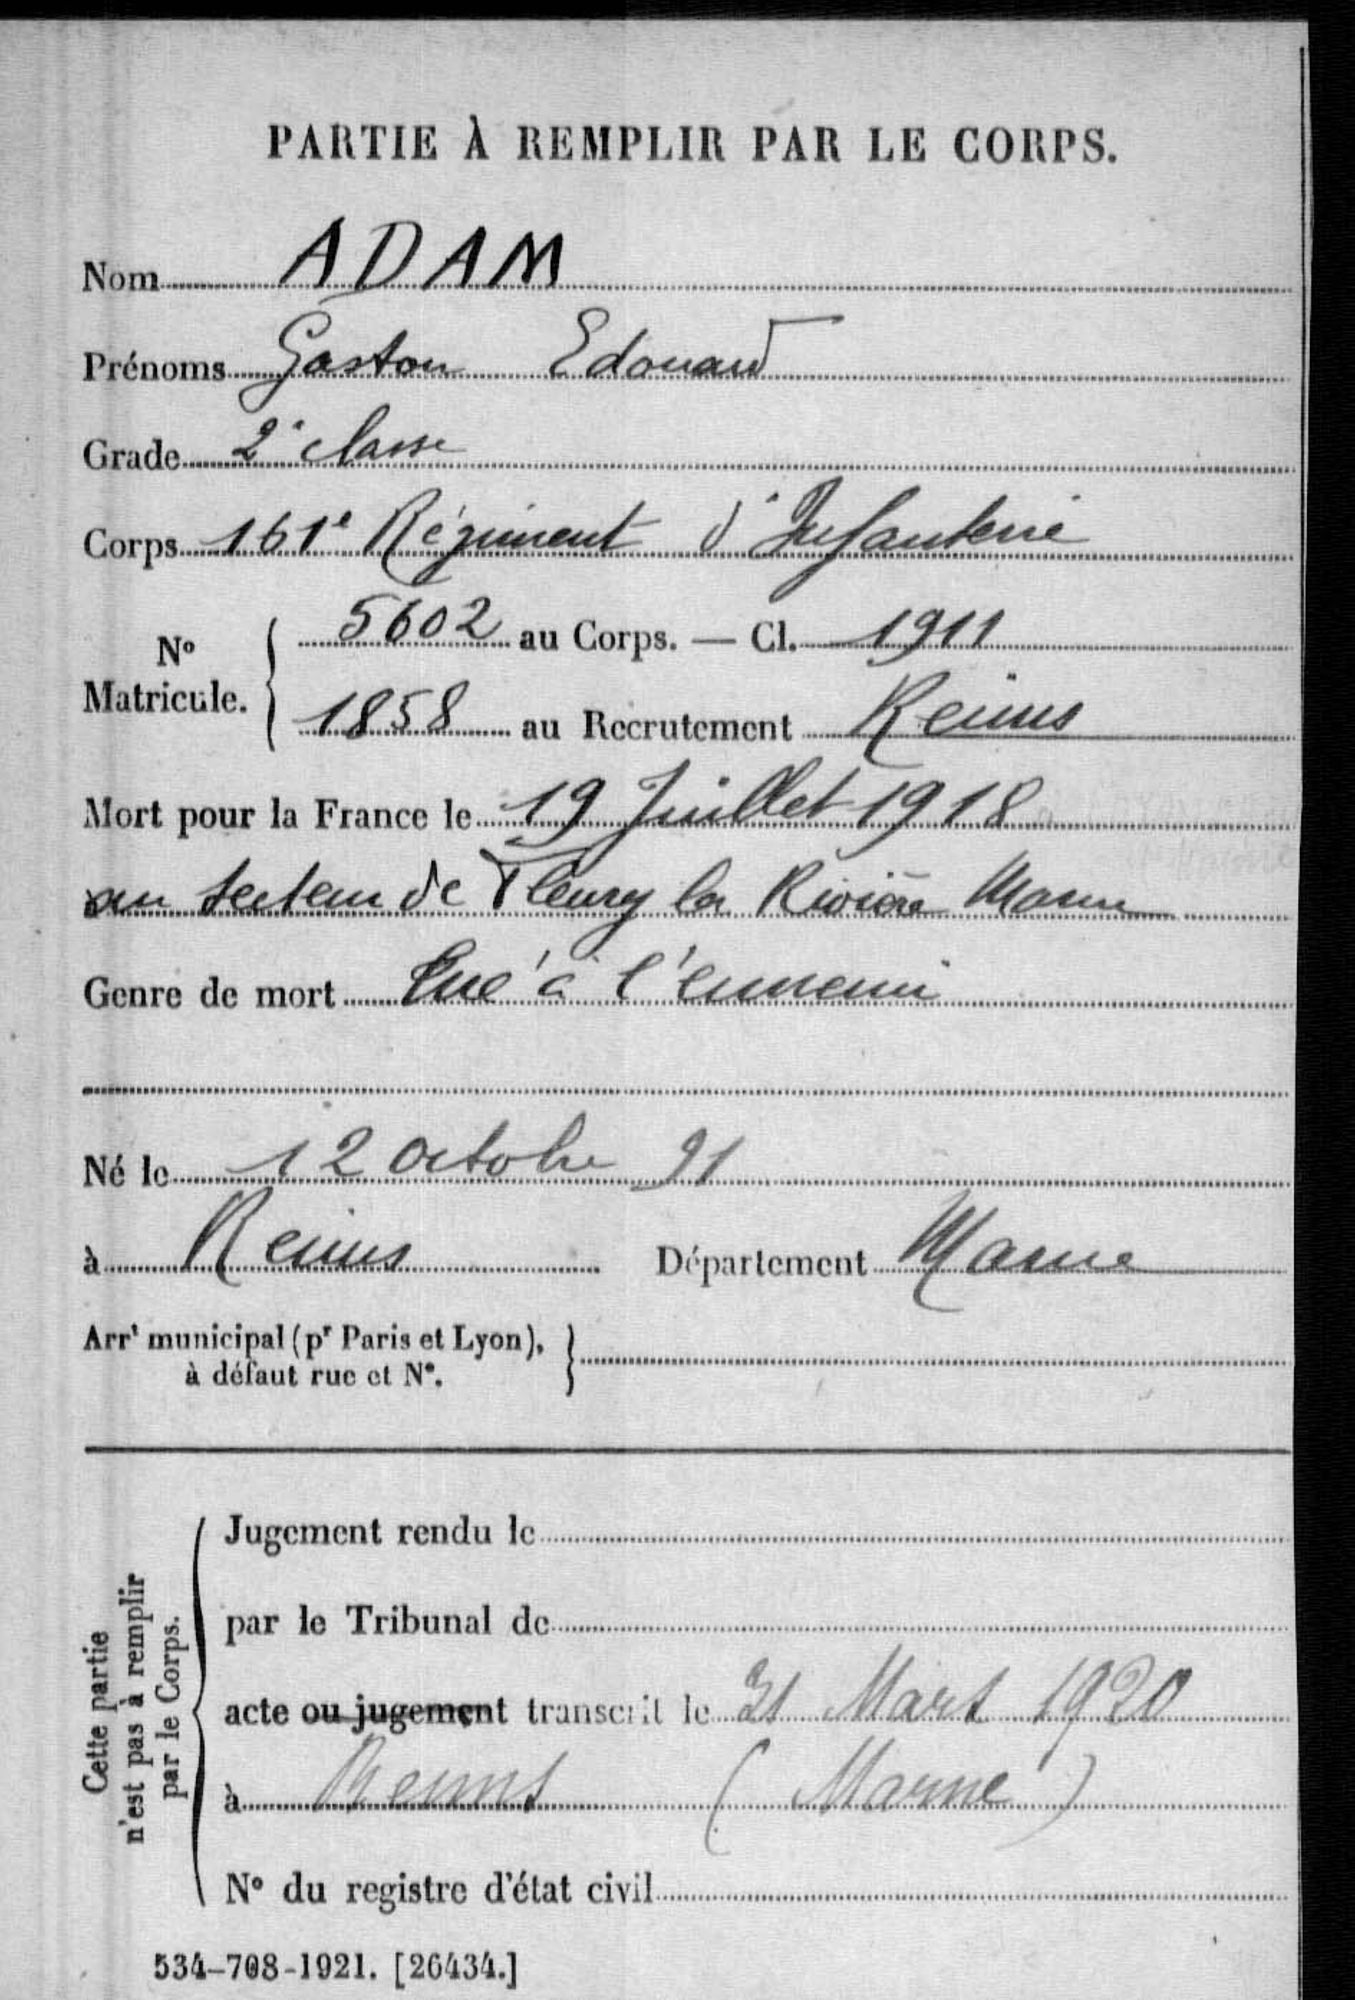 PARTIE À REMPLIR PAR LE CORPS.
Nom ADAM
Prénoms Gaston Edouard
Grade 2e classe
Corps 161e Régiment d'Infanterie
No Matricule. { 5602 au Corps. — Cl. 1911
1858 au Recrutement Reims
Mort pour la France le 19 Juillet 1918
au secteur de Fleury la Rivière Marne
Genre de mort Tué à l'ennemi
Né le 12 Octobre 91
à Reims Département Marne
Arrt municipal (pr Paris et Lyon), }
à défaut rue et No.
Cette partie
n'est pas à remplir
par le Corps.
Jugement rendu le
par le Tribunal de
acte ou jugement transcrit le 31 Mars 1920
à Reims (Marne)
No du registre d'état civil
534-708-1921. [26434.]